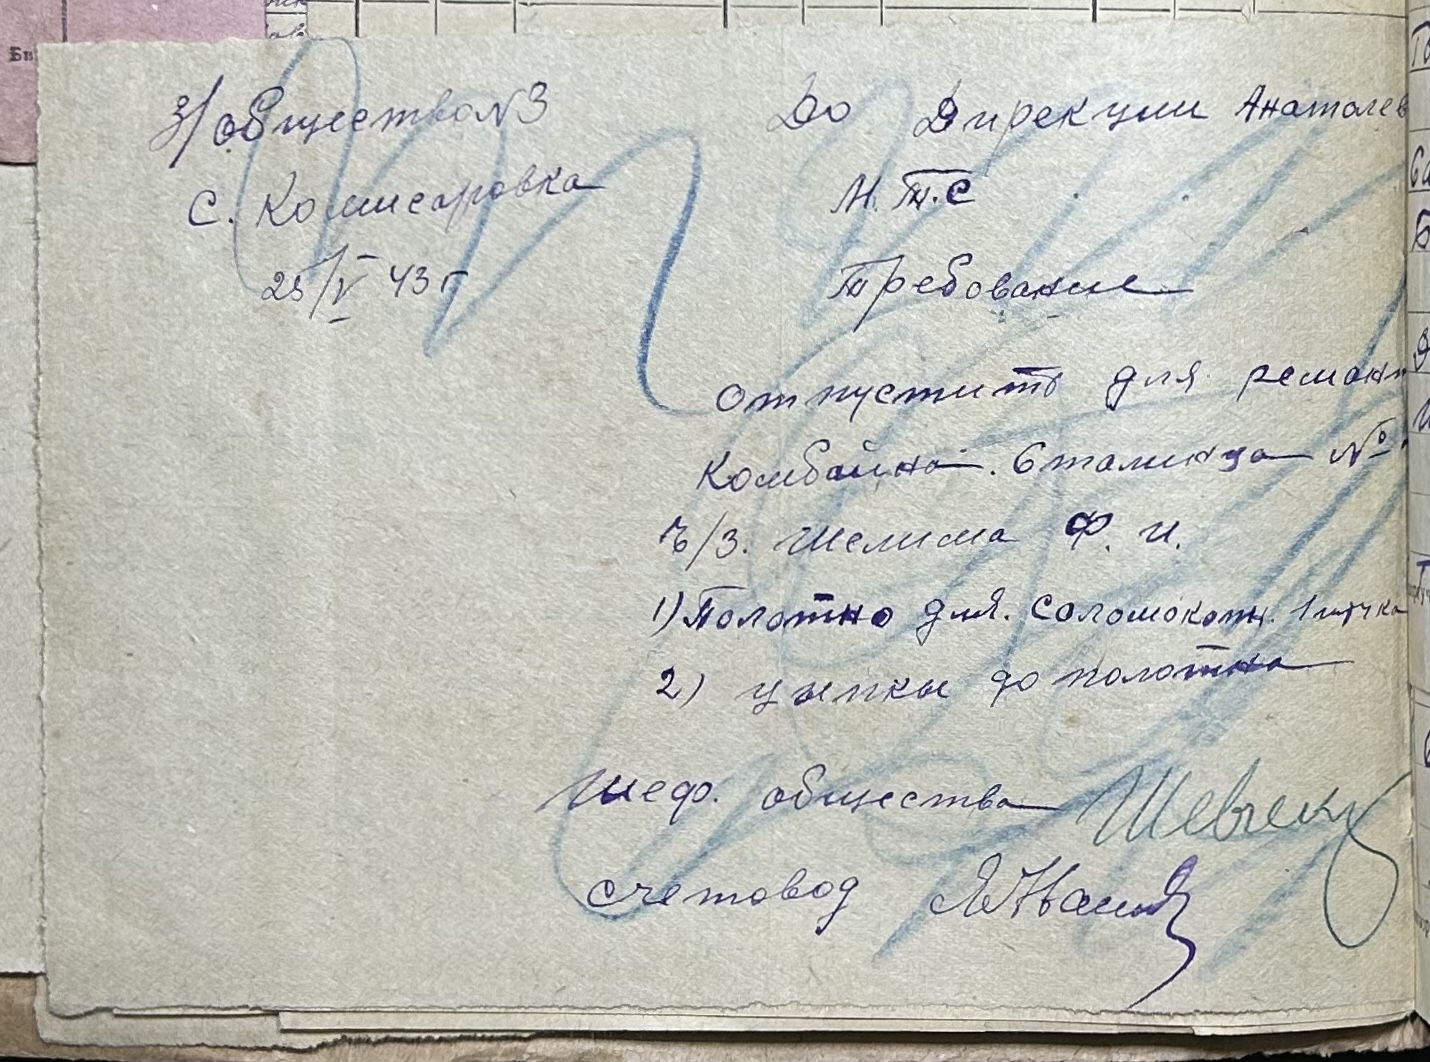 З/общество N 3
С. Комисаровка
25/V 43 г
До Дирекции Анатолев
М.Т.С
Требование
Отпустить для ремонт
Комбайна. Сталинца №
ч/з. Шелима Ф. И.
1) Полотно для. соломокоп. 1 штука
2) цыпкы до полотна
Шеф. общества Шевчен
счетовод